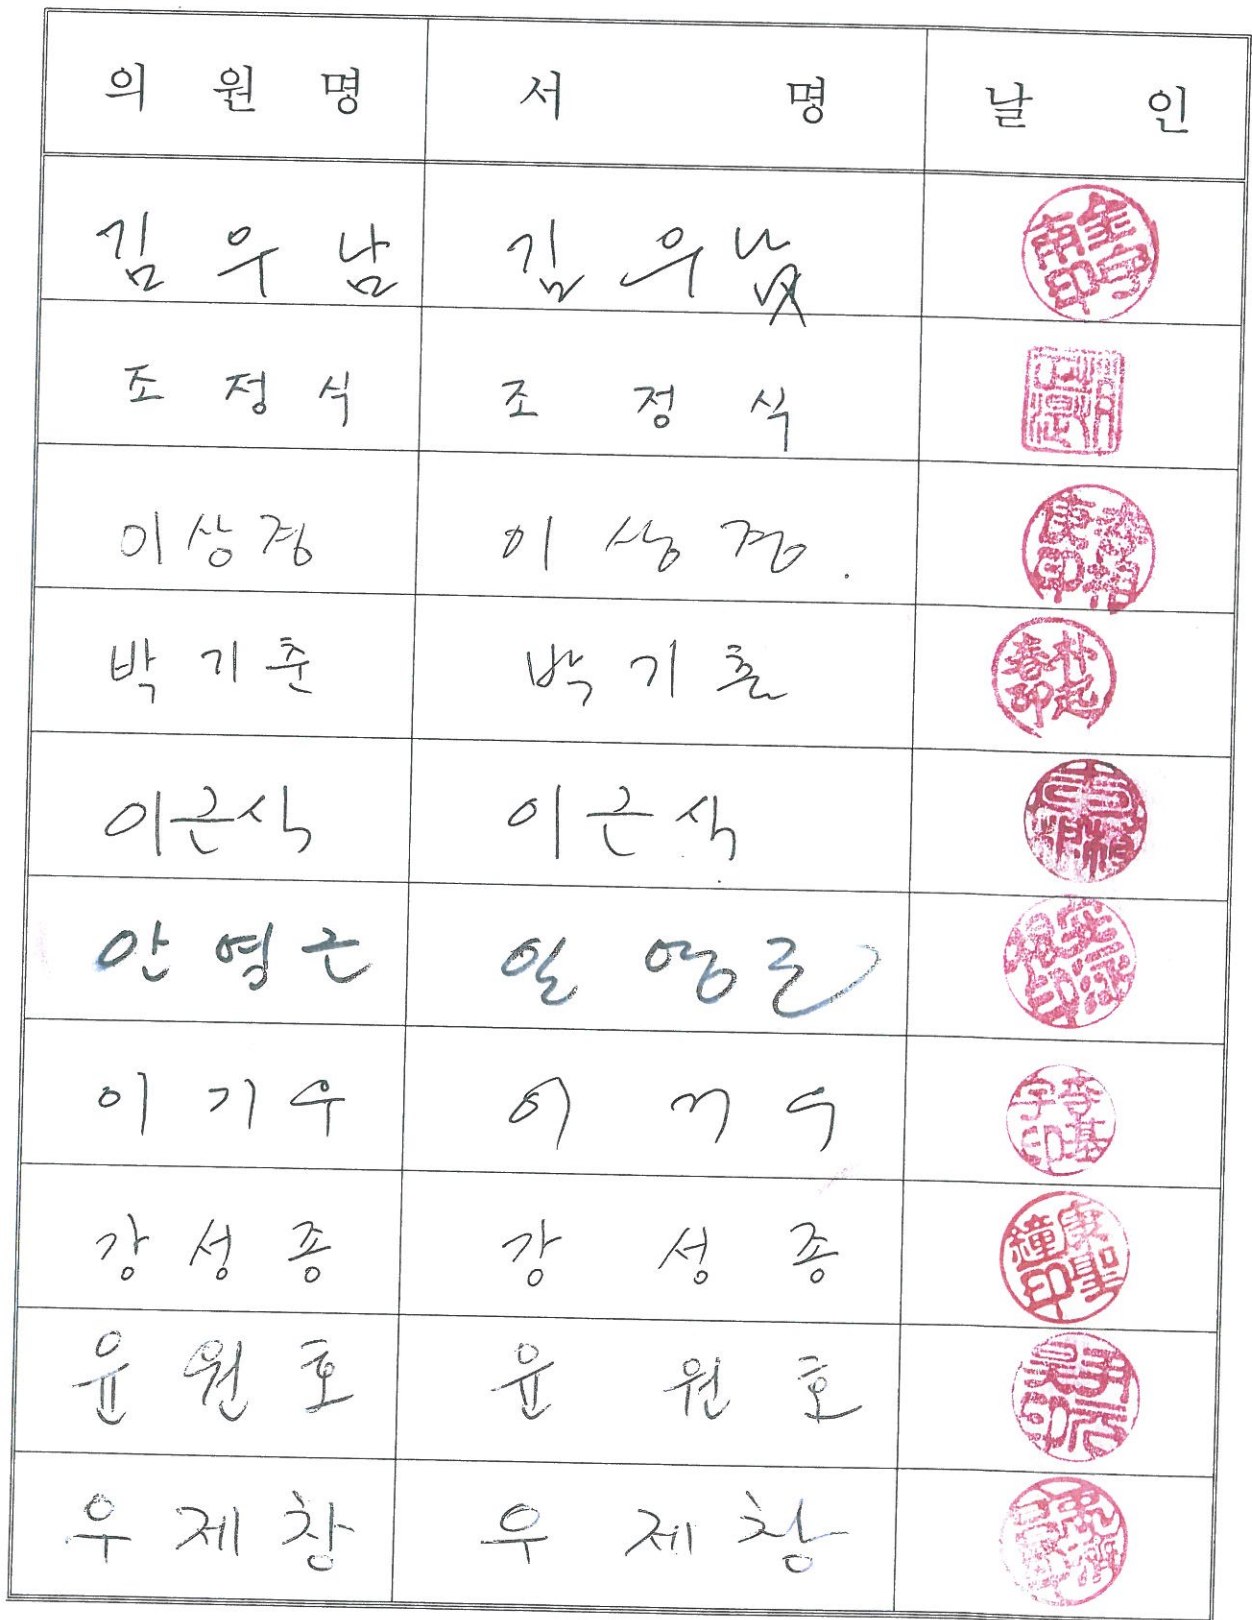 의 원 명 서 명 날 인
김 우 남 김 우 남
조 정 식 조 정 식
이상경 이 상 경.
박 기 춘 박 기 춘 朴起春印
이근식 이 근 식
안 영 근 안 영 근
이 기 우 이 기 우 李基宇印
강 성 종 강 성 종 康聖鐘印
윤 원 호 윤 원 호
우 제 창 우 제 창